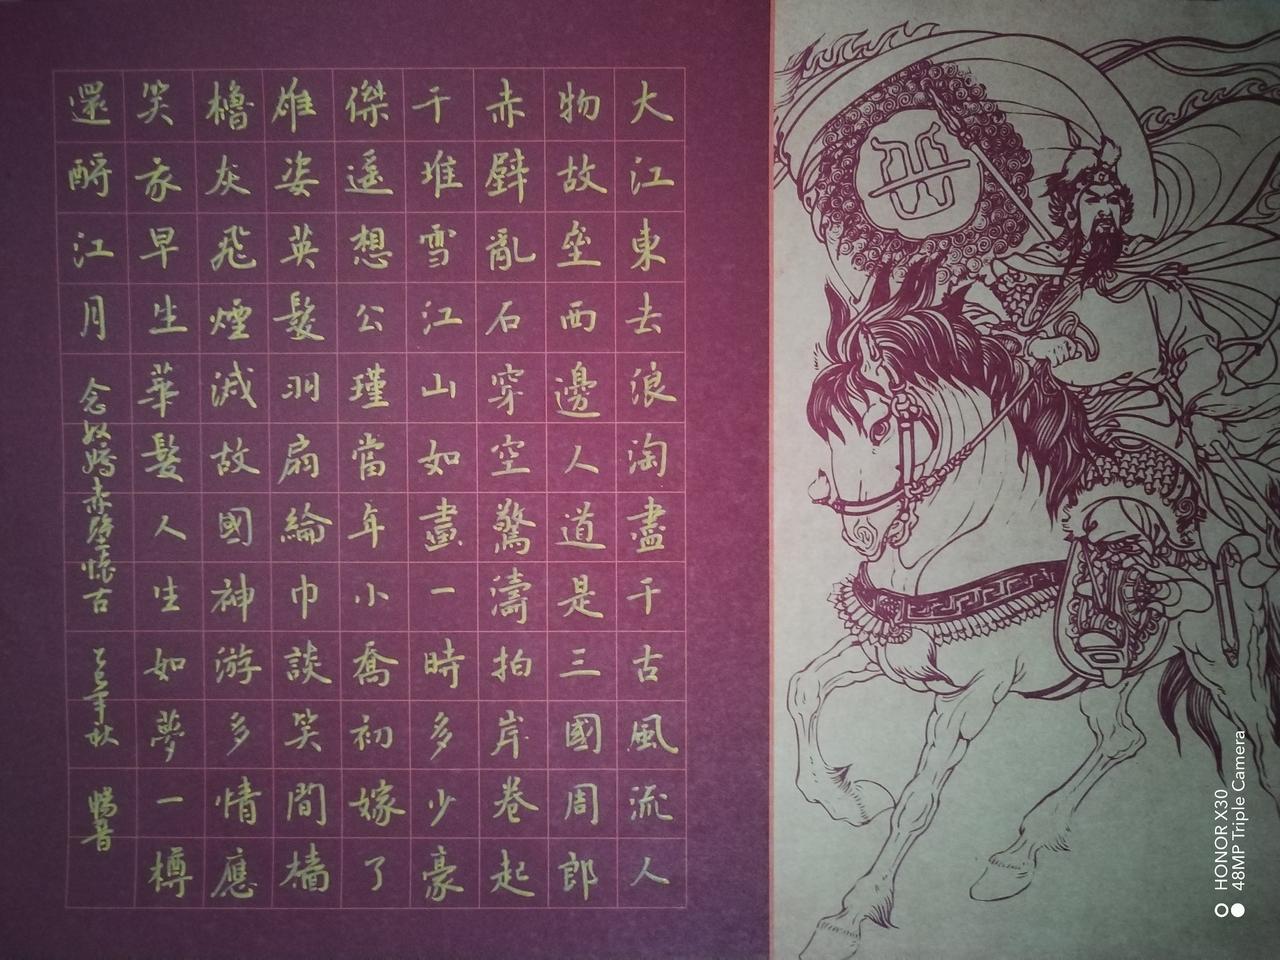 大江東去浪淘盡千古風流人
物故垒西邊人道是三國周郎
赤壁亂石穿空驚濤拍岸卷起
千堆雪江山如畫一時多少豪
傑遥想公瑾當年小喬初嫁了
雄姿英髮羽扇綸巾談笑間檣
櫓灰飛煙滅故國神游多情應
笑我早生華髮人生如夢一樽
還酹江月
念奴嬌赤壁懷古
乙巳年秋
HONOR X30
48MP Triple Camera